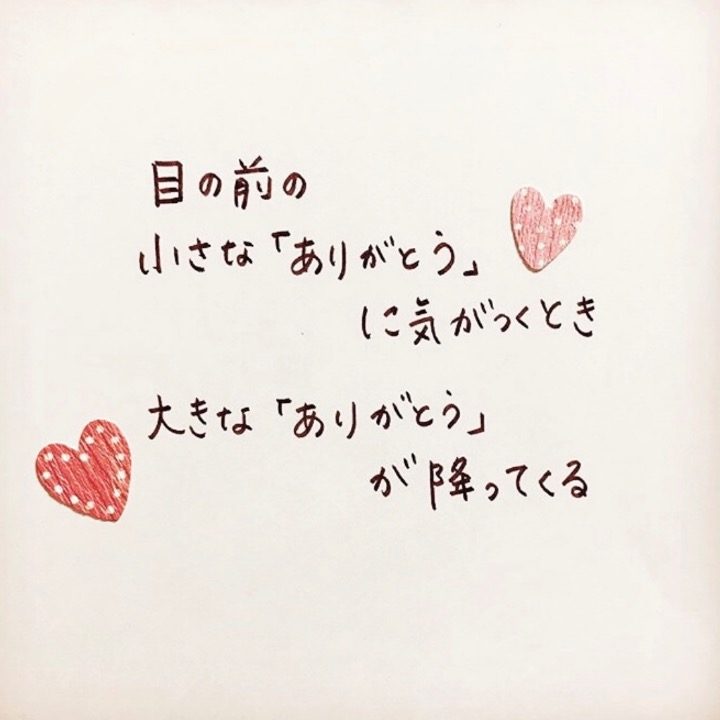 目の前の
小さな「ありがとう」
に気がつくとき
大きな「ありがとう」
が降ってくる